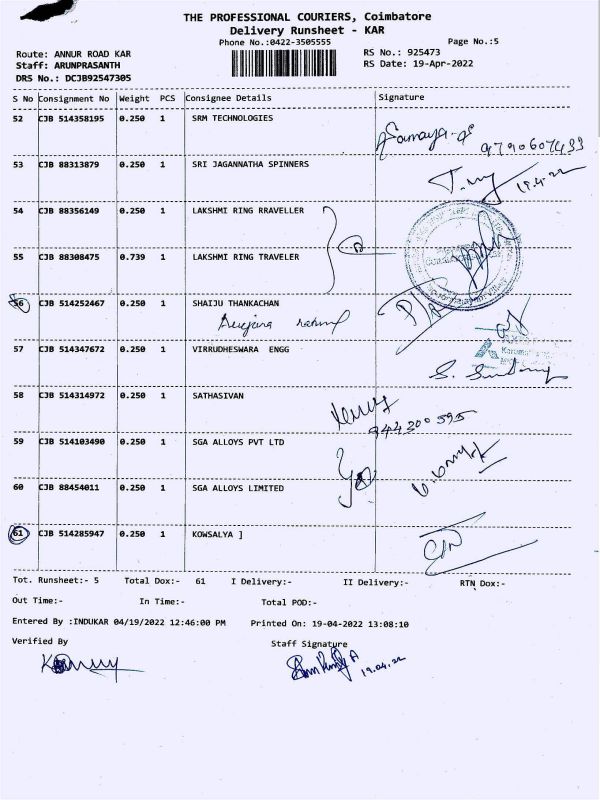 THE PROFESSIONAL COURIERS, Coimbatore
Delivery Runsheet - KAR
Phone No.:0422-3505555
Page No.:5
Route: ANNUR ROAD KAR
RS No.: 925473
Staff: ARUNPRASANTH
RS Date: 19-Apr-2022
DRS No.: DCJB92547305
S No Consignment No Weight PCS Consignee Details Signature
52 CJB 514358195 0.250 1 SRM TECHNOLOGIES
9790607433
53 CJB 88313879 0.250 1 SRI JAGANNATHA SPINNERS
19.4.22
54 CJB 88356149 0.250 1 LAKSHMI RING RRAVELLER
55 CJB 88308475 0.739 1 LAKSHMI RING TRAVELER
56 CJB 514252467 0.250 1 SHAIJU THANKACHAN
57 CJB 514347672 0.250 1 VIRRUDHESWARA ENGG
58 CJB 514314972 0.250 1 SATHASIVAN
59 CJB 514103490 0.250 1 SGA ALLOYS PVT LTD
60 CJB 88454011 0.250 1 SGA ALLOYS LIMITED
61 CJB 514285947 0.250 1 KOWSALYA ]
Tot. Runsheet:- 5 Total Dox:- 61 I Delivery:- II Delivery:- RTN Dox:-
Out Time:- In Time:- Total POD:-
Entered By :INDUKAR 04/19/2022 12:46:00 PM Printed On: 19-04-2022 13:08:10
Verified By Staff Signature
19.04.22